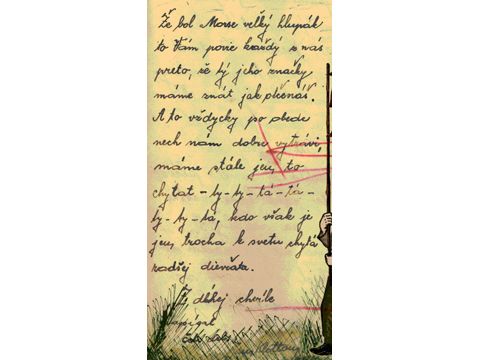 Že bol Morse veľký hlupák
to Vám povie každý z nás
preto, že tý jeho značky
máme znát jak otčenáš.
A to vždycky po obede
nech nám dobre vytrávi,
máme stále jen, to
chytat – ty – ty – tá – tá –
ty – ty – tá, kdo však je
jen, trocha k svetu chytá
radšej dievčata.
Z dlhej chvíle